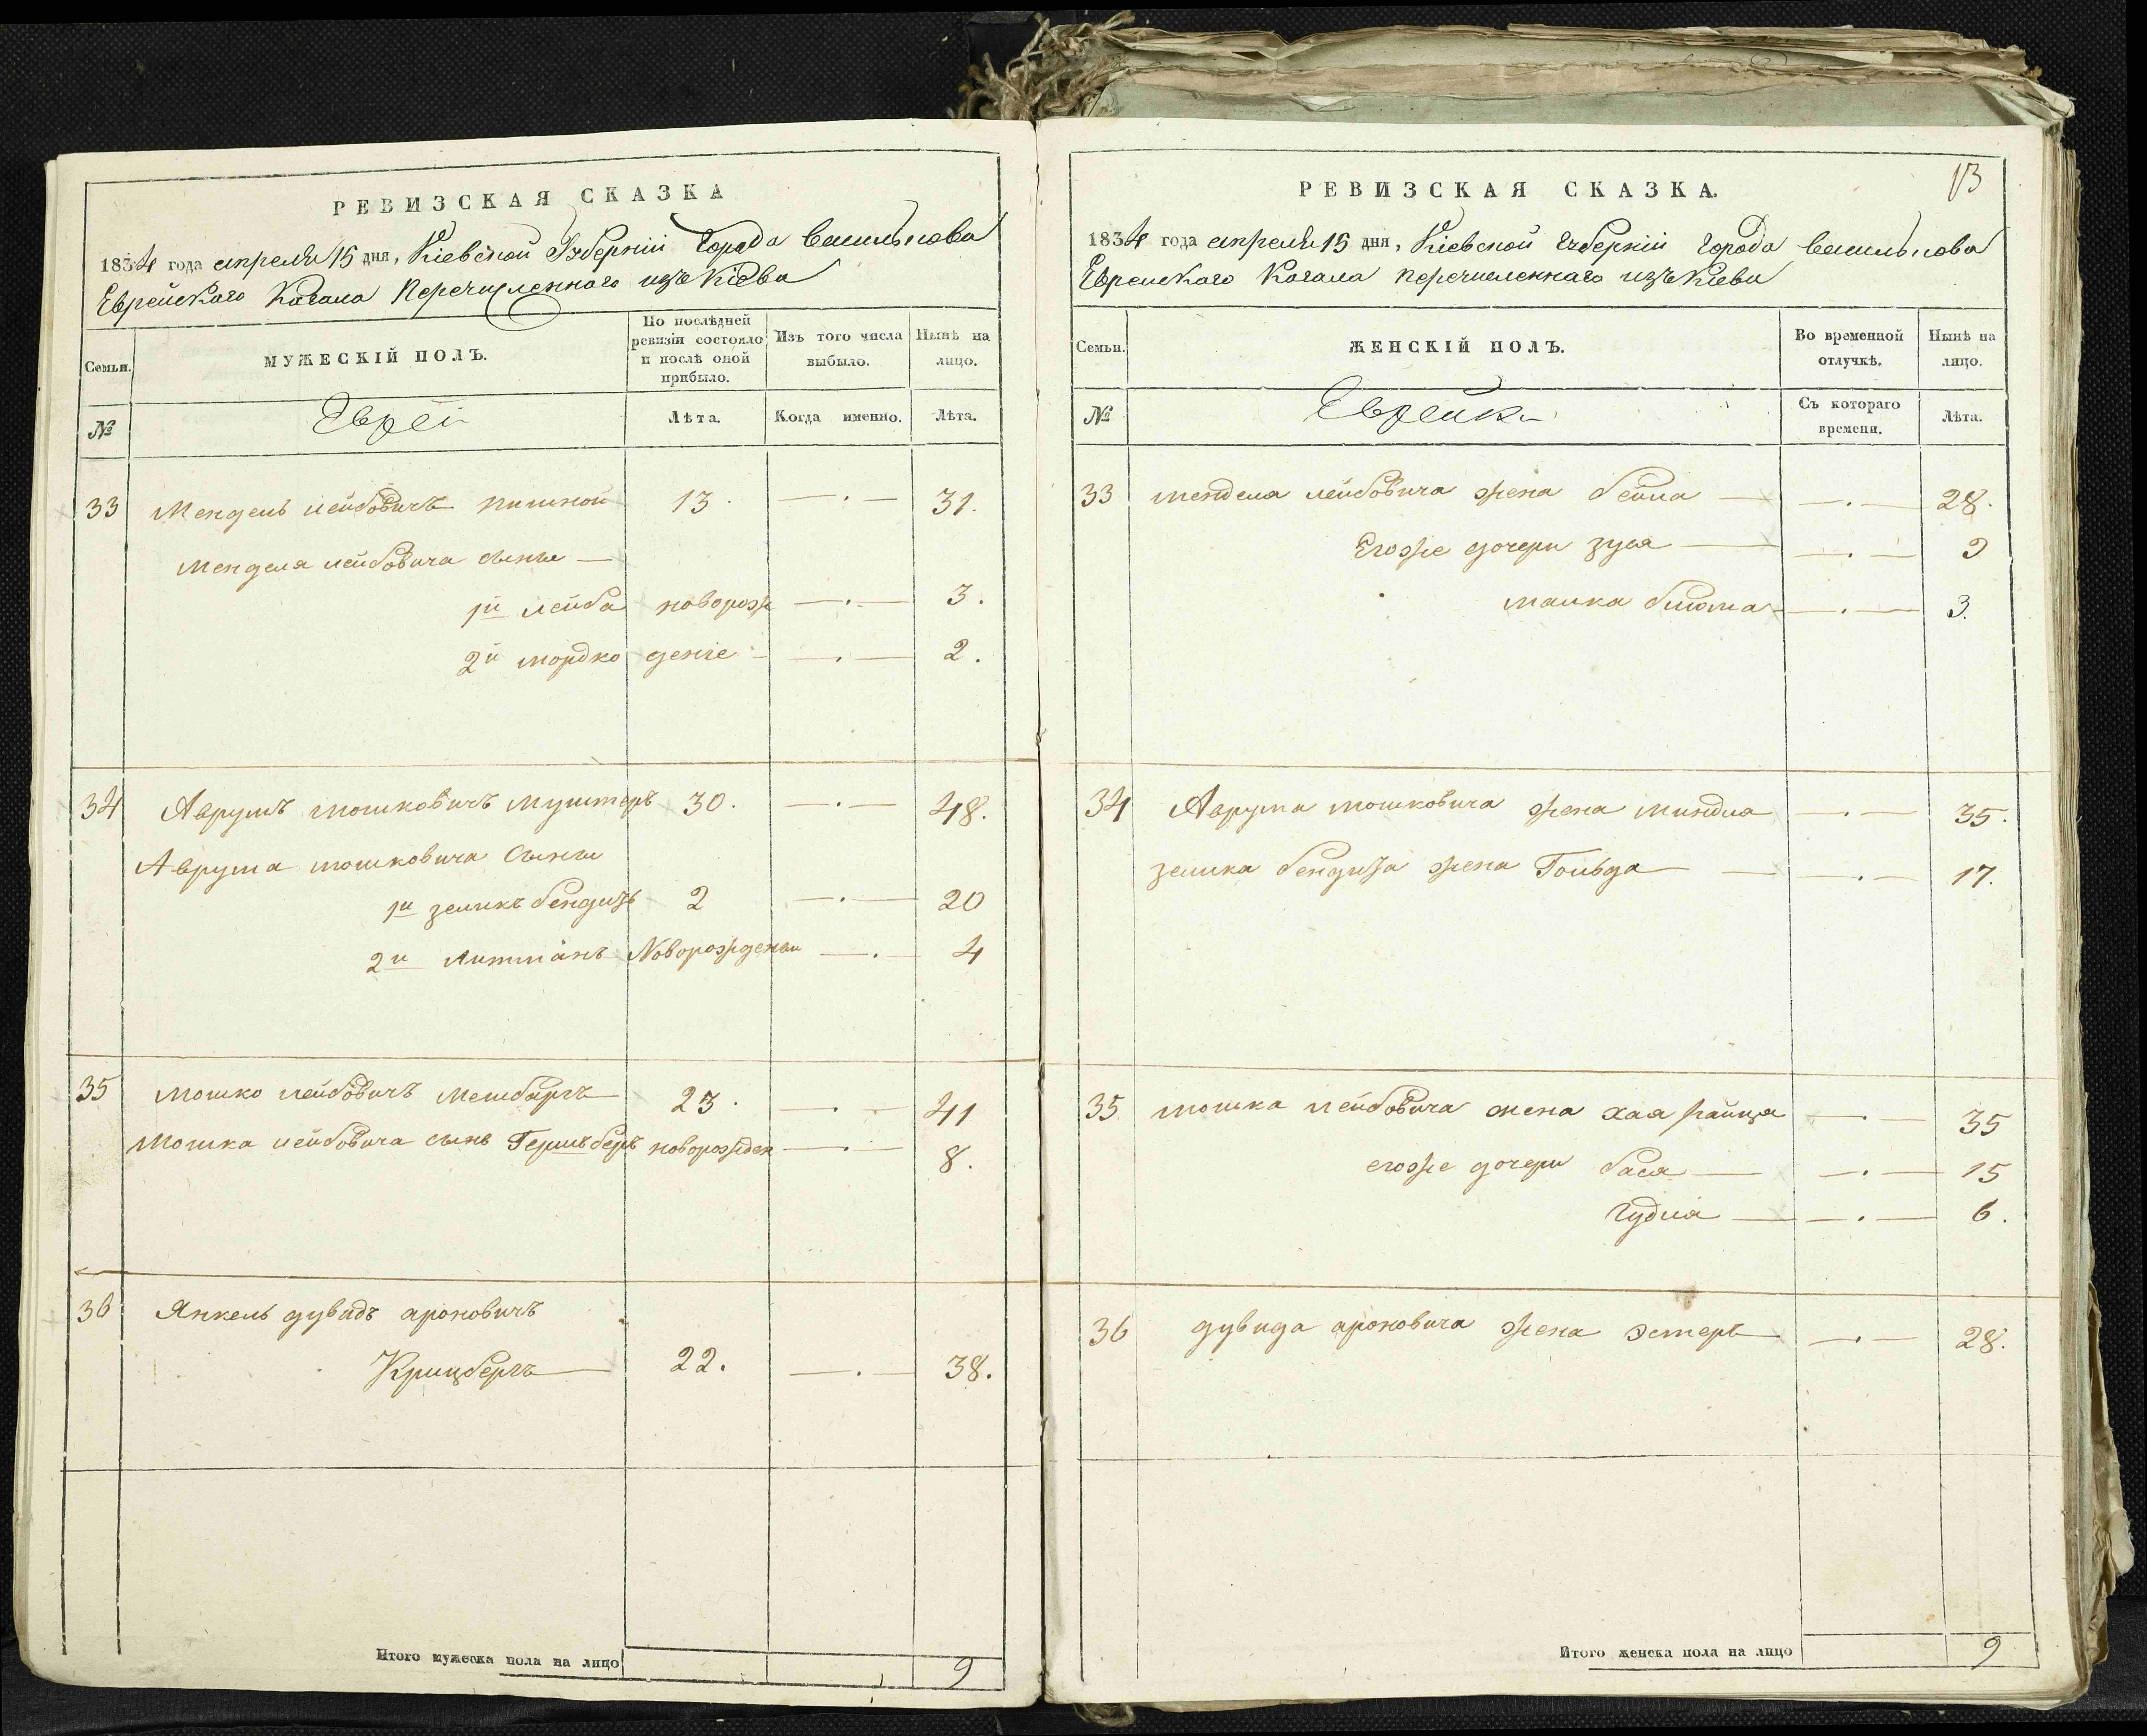 РЕВИЗСКАЯ СКАЗКА
1834 года апреля 15 дня, Кіевской Губерніи Города Василькова
Еврейскаго Кагала Перечисленнаго изъ Кіева
Семьи.
МУЖЕСКІЙ ПОЛЪ.
По послѣдней ревизіи состояло и послѣ оной прибыло.
Изъ того числа выбыло.
Нынѣ на лицо.
№
Евреи
Лѣта.
Когда именно.
Лѣта.
33 Мендель лейбовичъ 13. —.— 31.
Менделя лейбовича сыны —
1й лейба новорож —.— 3.
2й мордко деніе —.— 2.
34 Аврумъ мошковичъ Мушмеръ 30. —.— 48.
Аврума мошковича сыны
1й зеликъ бендитъ 2 —.— 20
2й литманъ Новорожденъ —.— 4
35 мошко лейбовичъ 23. —.— 41
Мошка лейбовича сынъ Гершъ беръ новорожден —.— 8.
36 Янкель дувидъ ароновичъ
Крицбергъ 22. —.— 38.
Итого мужеска пола на лицо 9
13
РЕВИЗСКАЯ СКАЗКА.
1834 года апреля 15 дня, Кіевской Губерніи Города Василькова
Еврейскаго Кагала перечисленнаго изъ Кіева
Семьи.
ЖЕНСКІЙ ПОЛЪ.
Во временной отлучкѣ.
Нынѣ на лицо.
№
Еврейки
Съ котораго времени.
Лѣта.
33 менделя лейбовича жена бейла —.— 28.
Егоже дочери зуся —.—
малка блюма —.— 3.
34 Аврума мошковича жена миндля —.— 35.
зелика бендита жена Гольда —.— 17.
35 мошка лейбовича жена хая райца —.— 35
егоже дочери бася —.— 15
Гудля —.— 6.
36 дувида ароновича жена эстеръ —.— 28.
Итого женска пола на лицо 9